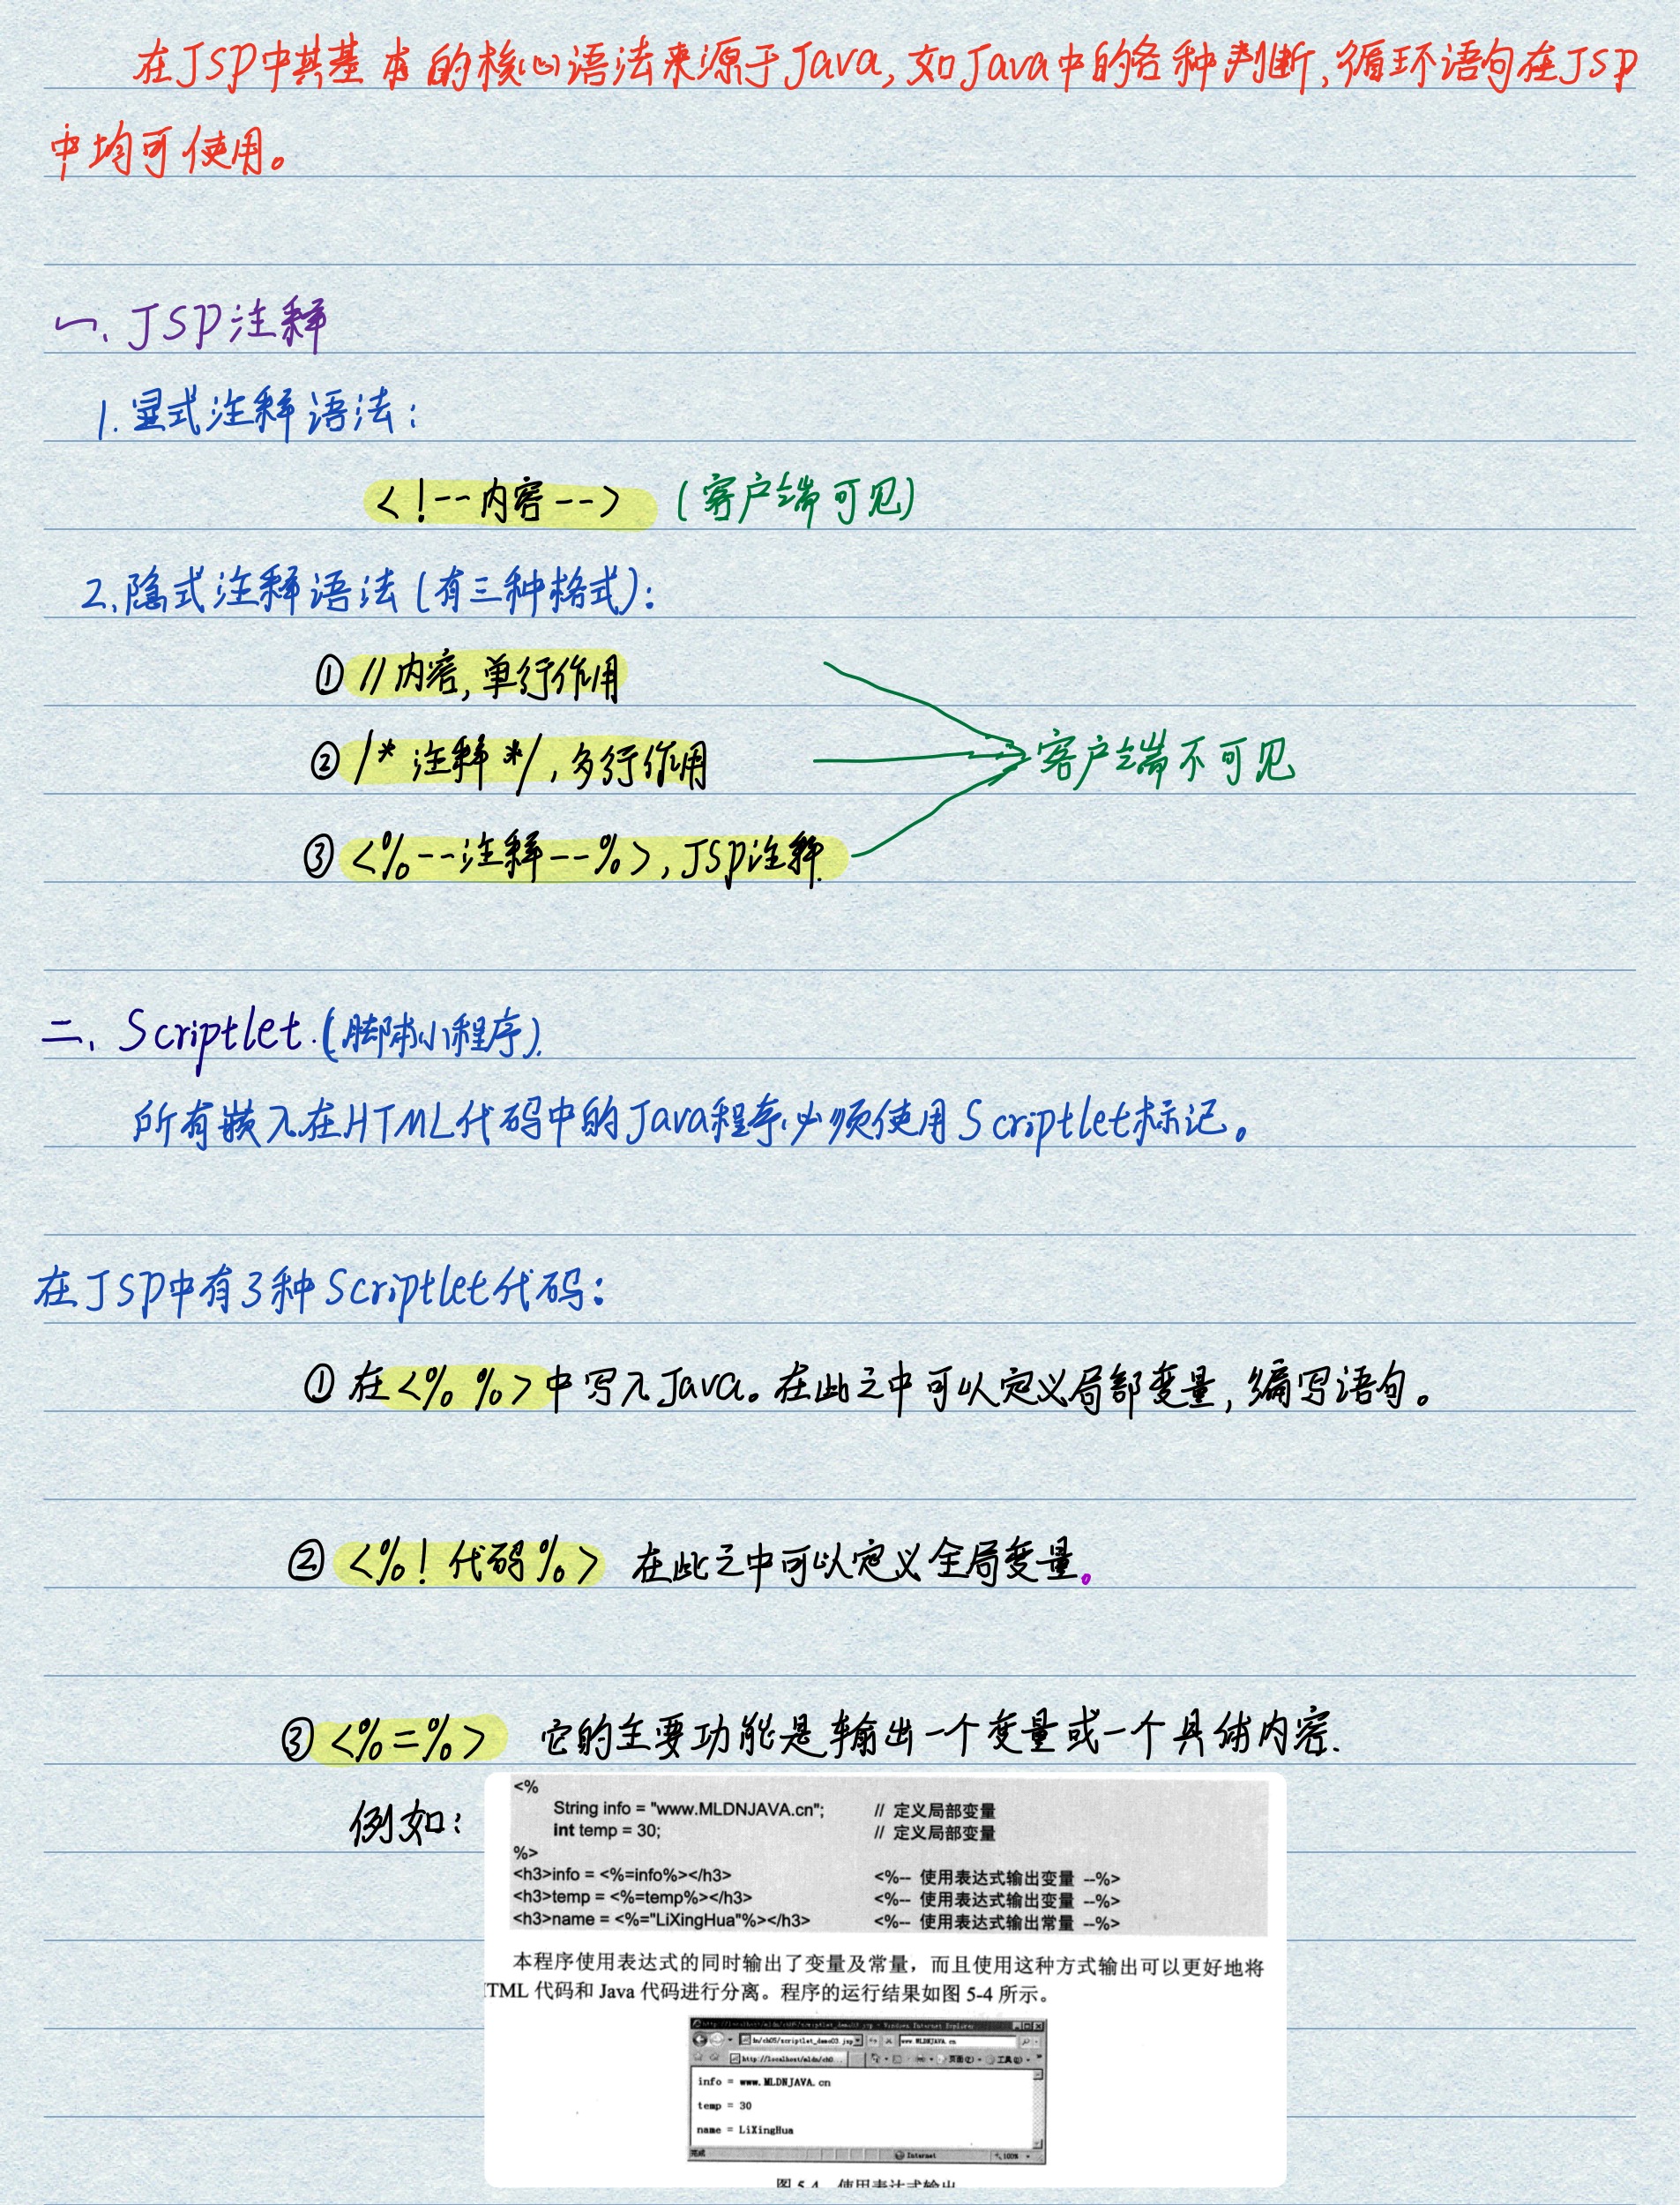 在JSP中其基本的核心语法来源于Java,如Java中的各种判断,循环语句在JSP
中均可使用。
一、JSP注释
1.显式注释语法:
<!--内容--> (客户端可见)
2.隐式注释语法(有三种格式):
① //内容,单行作用
② /* 注释 */,多行作用
客户端不可见
③ <%--注释--%>,JSP注释.
二、Scriptlet.(脚本小程序).
所有嵌入在HTML代码中的Java程序,必须使用Scriptlet标记。
在JSP中有3种Scriptlet代码:
① 在<% %>中写入Java。在此之中可以定义局部变量,编写语句。
② <%! 代码%> 在此之中可以定义全局变量。
③ <%=%> 它的主要功能是输出一个变量或一个具体内容.
例如:
<%
String info = "www.MLDNJAVA.cn"; // 定义局部变量
int temp = 30; // 定义局部变量
%>
<h3>info = <%=info%></h3> <%-- 使用表达式输出变量 --%>
<h3>temp = <%=temp%></h3> <%-- 使用表达式输出变量 --%>
<h3>name = <%="LiXingHua"%></h3> <%-- 使用表达式输出常量 --%>
本程序使用表达式的同时输出了变量及常量，而且使用这种方式输出可以更好地将
TML 代码和 Java 代码进行分离。程序的运行结果如图 5-4 所示。
http://localhost/mldn/ch05/scriptlet_demo03.jsp - Windows Internet Explorer
dn/ch05/scriptlet_demo03.jsp www.MLDNJAVA.cn
http://localhost/mldn/ch0... 页面(P) 工具(O)
info = www.MLDNJAVA.cn
temp = 30
name = LiXingHua
完成 Internet 100%
图 5-4 使用表达式输出